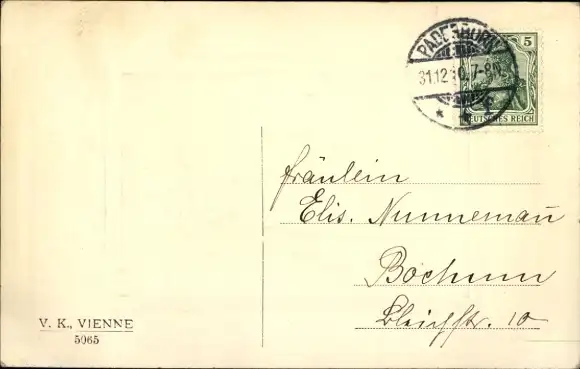 PADERBORN
31.12.10.7-8N.
5
DEUTSCHES REICH
Fräulein
Elis. Nunnemañ
Bochum
Bleichstr. 10
V. K., VIENNE
5065